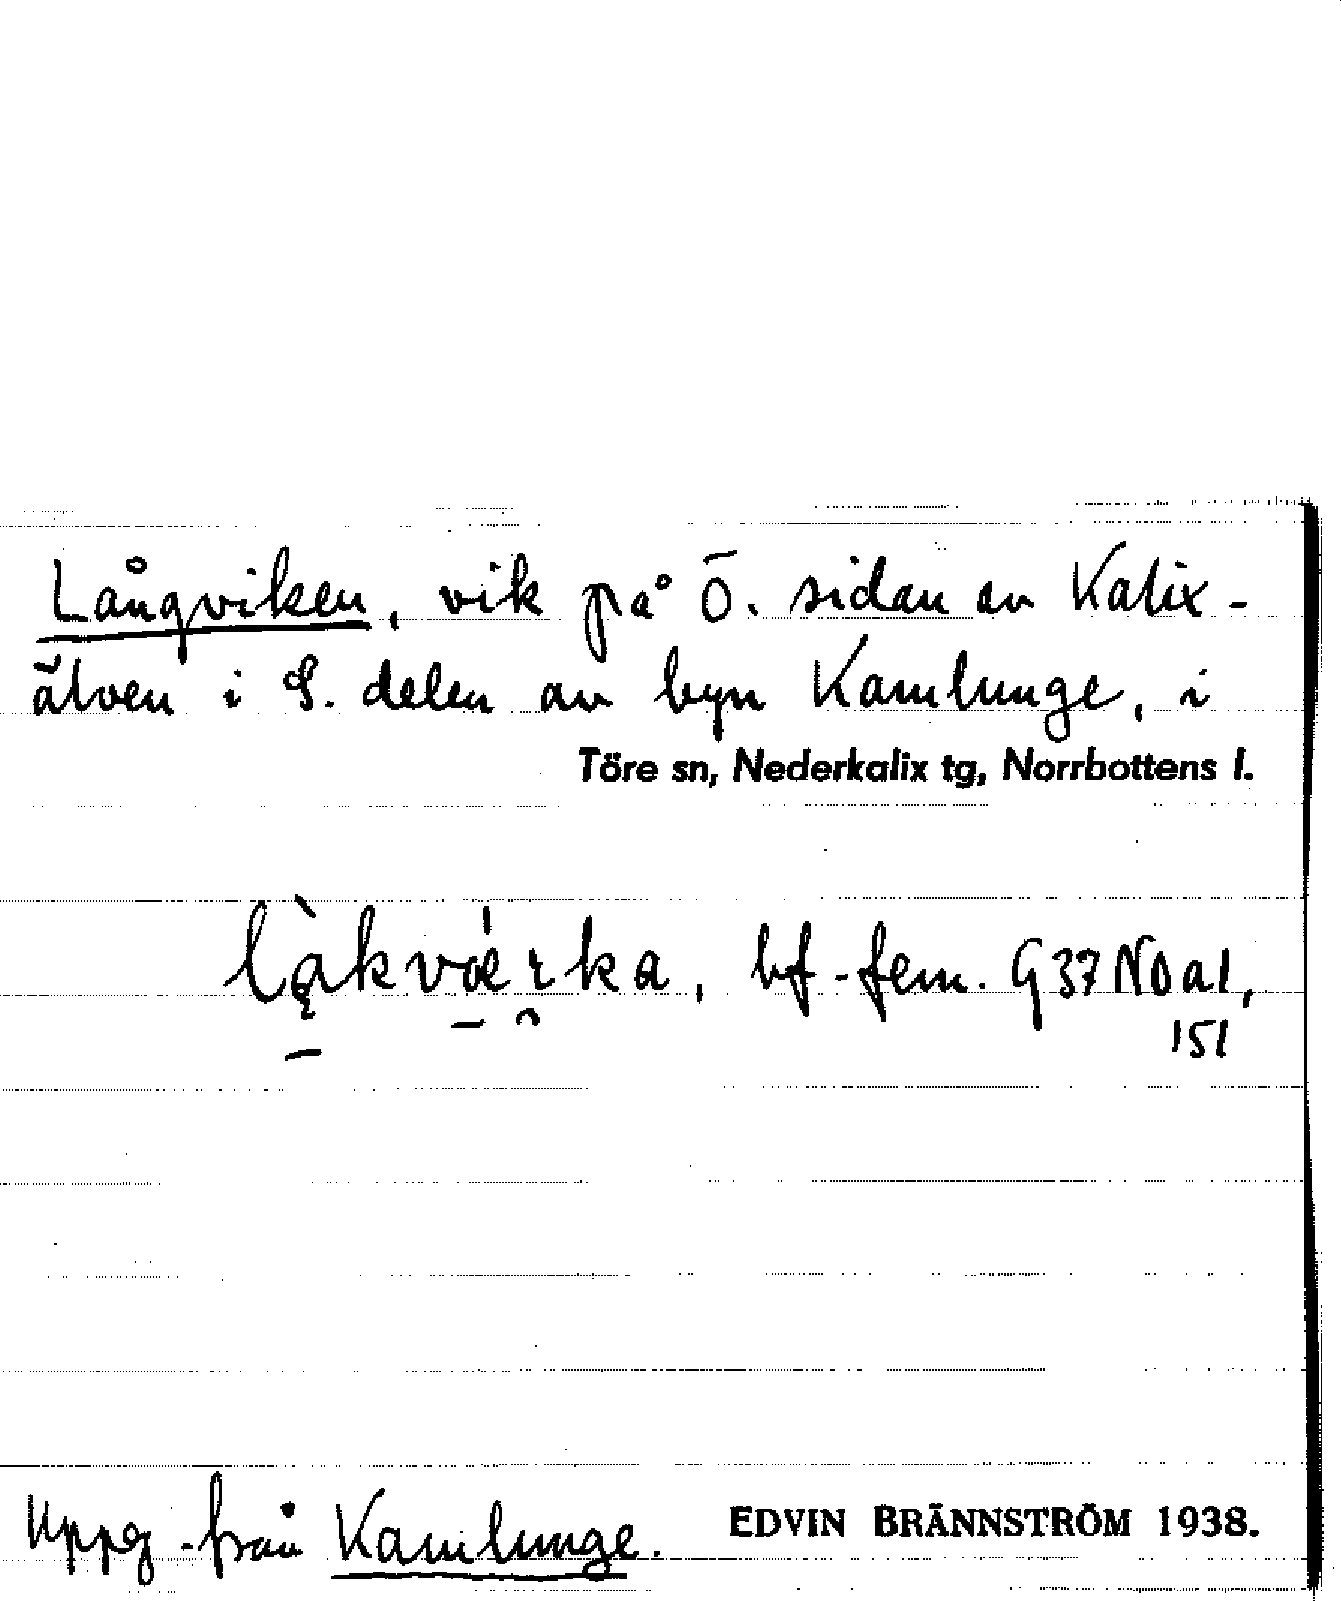 Långviken, vik på Ö. sidan av Kalix-
älven i S. delen av byn Kamlunge, i
Töre sn, Nederkalix tg, Norrbottens l.
bf. fem. G 37 NO a 1,
151
Uppg. från Kamlunge. EDVIN BRÄNNSTRÖM 1938.